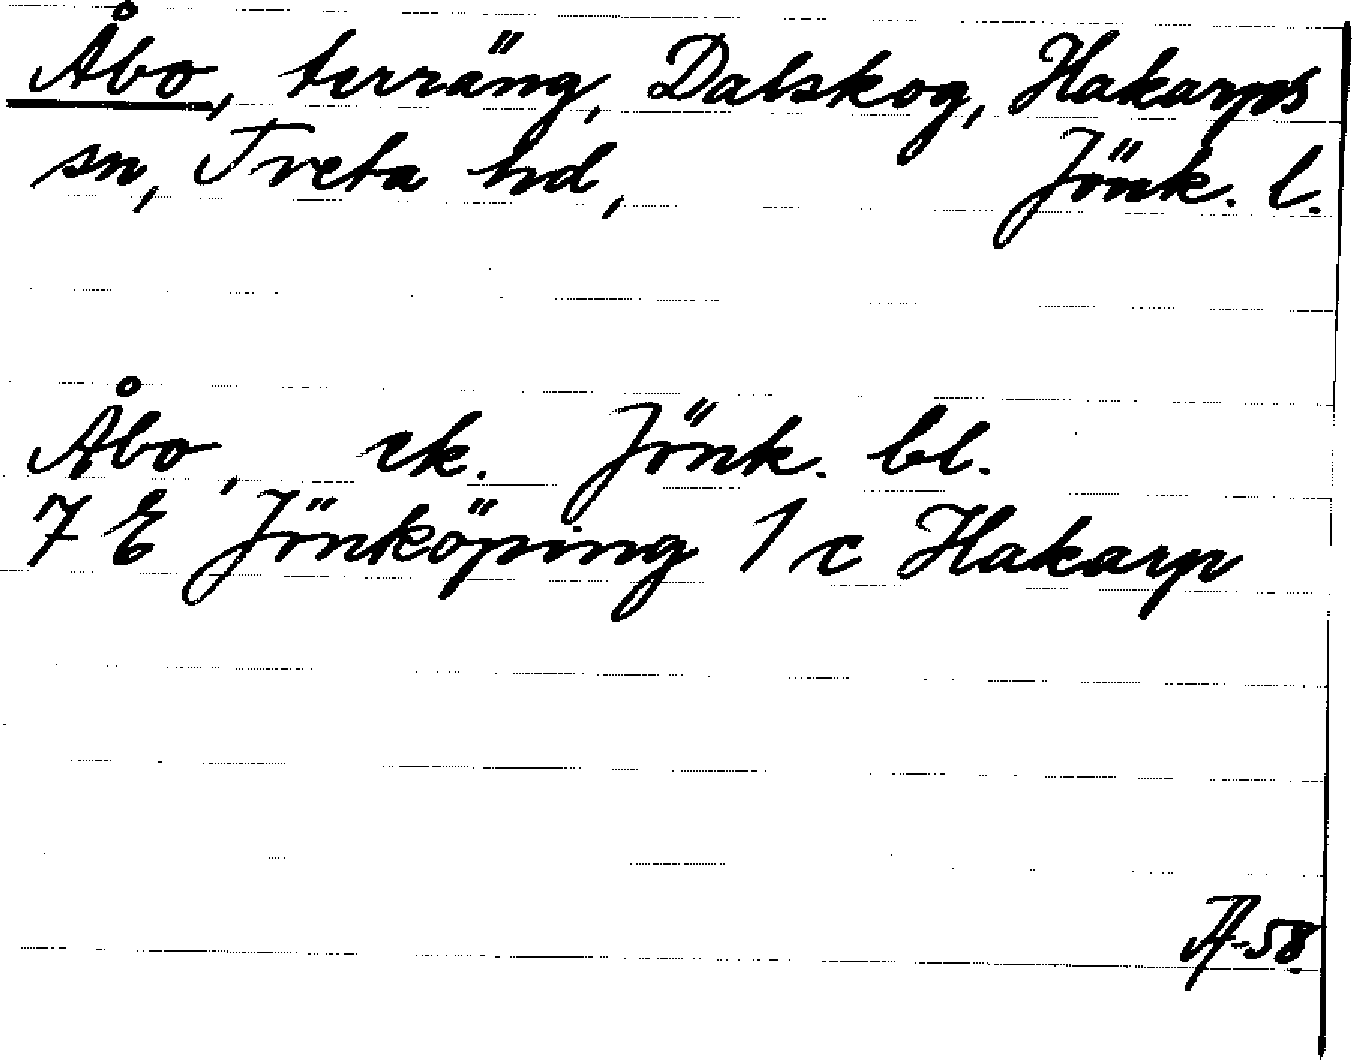 Åbo, terräng, Dalskog, Hakarps
sn, Tveta hd, Jönk. l.
Åbo, ek. Jönk. bl.
7 E Jönköping 1 c Hakarp